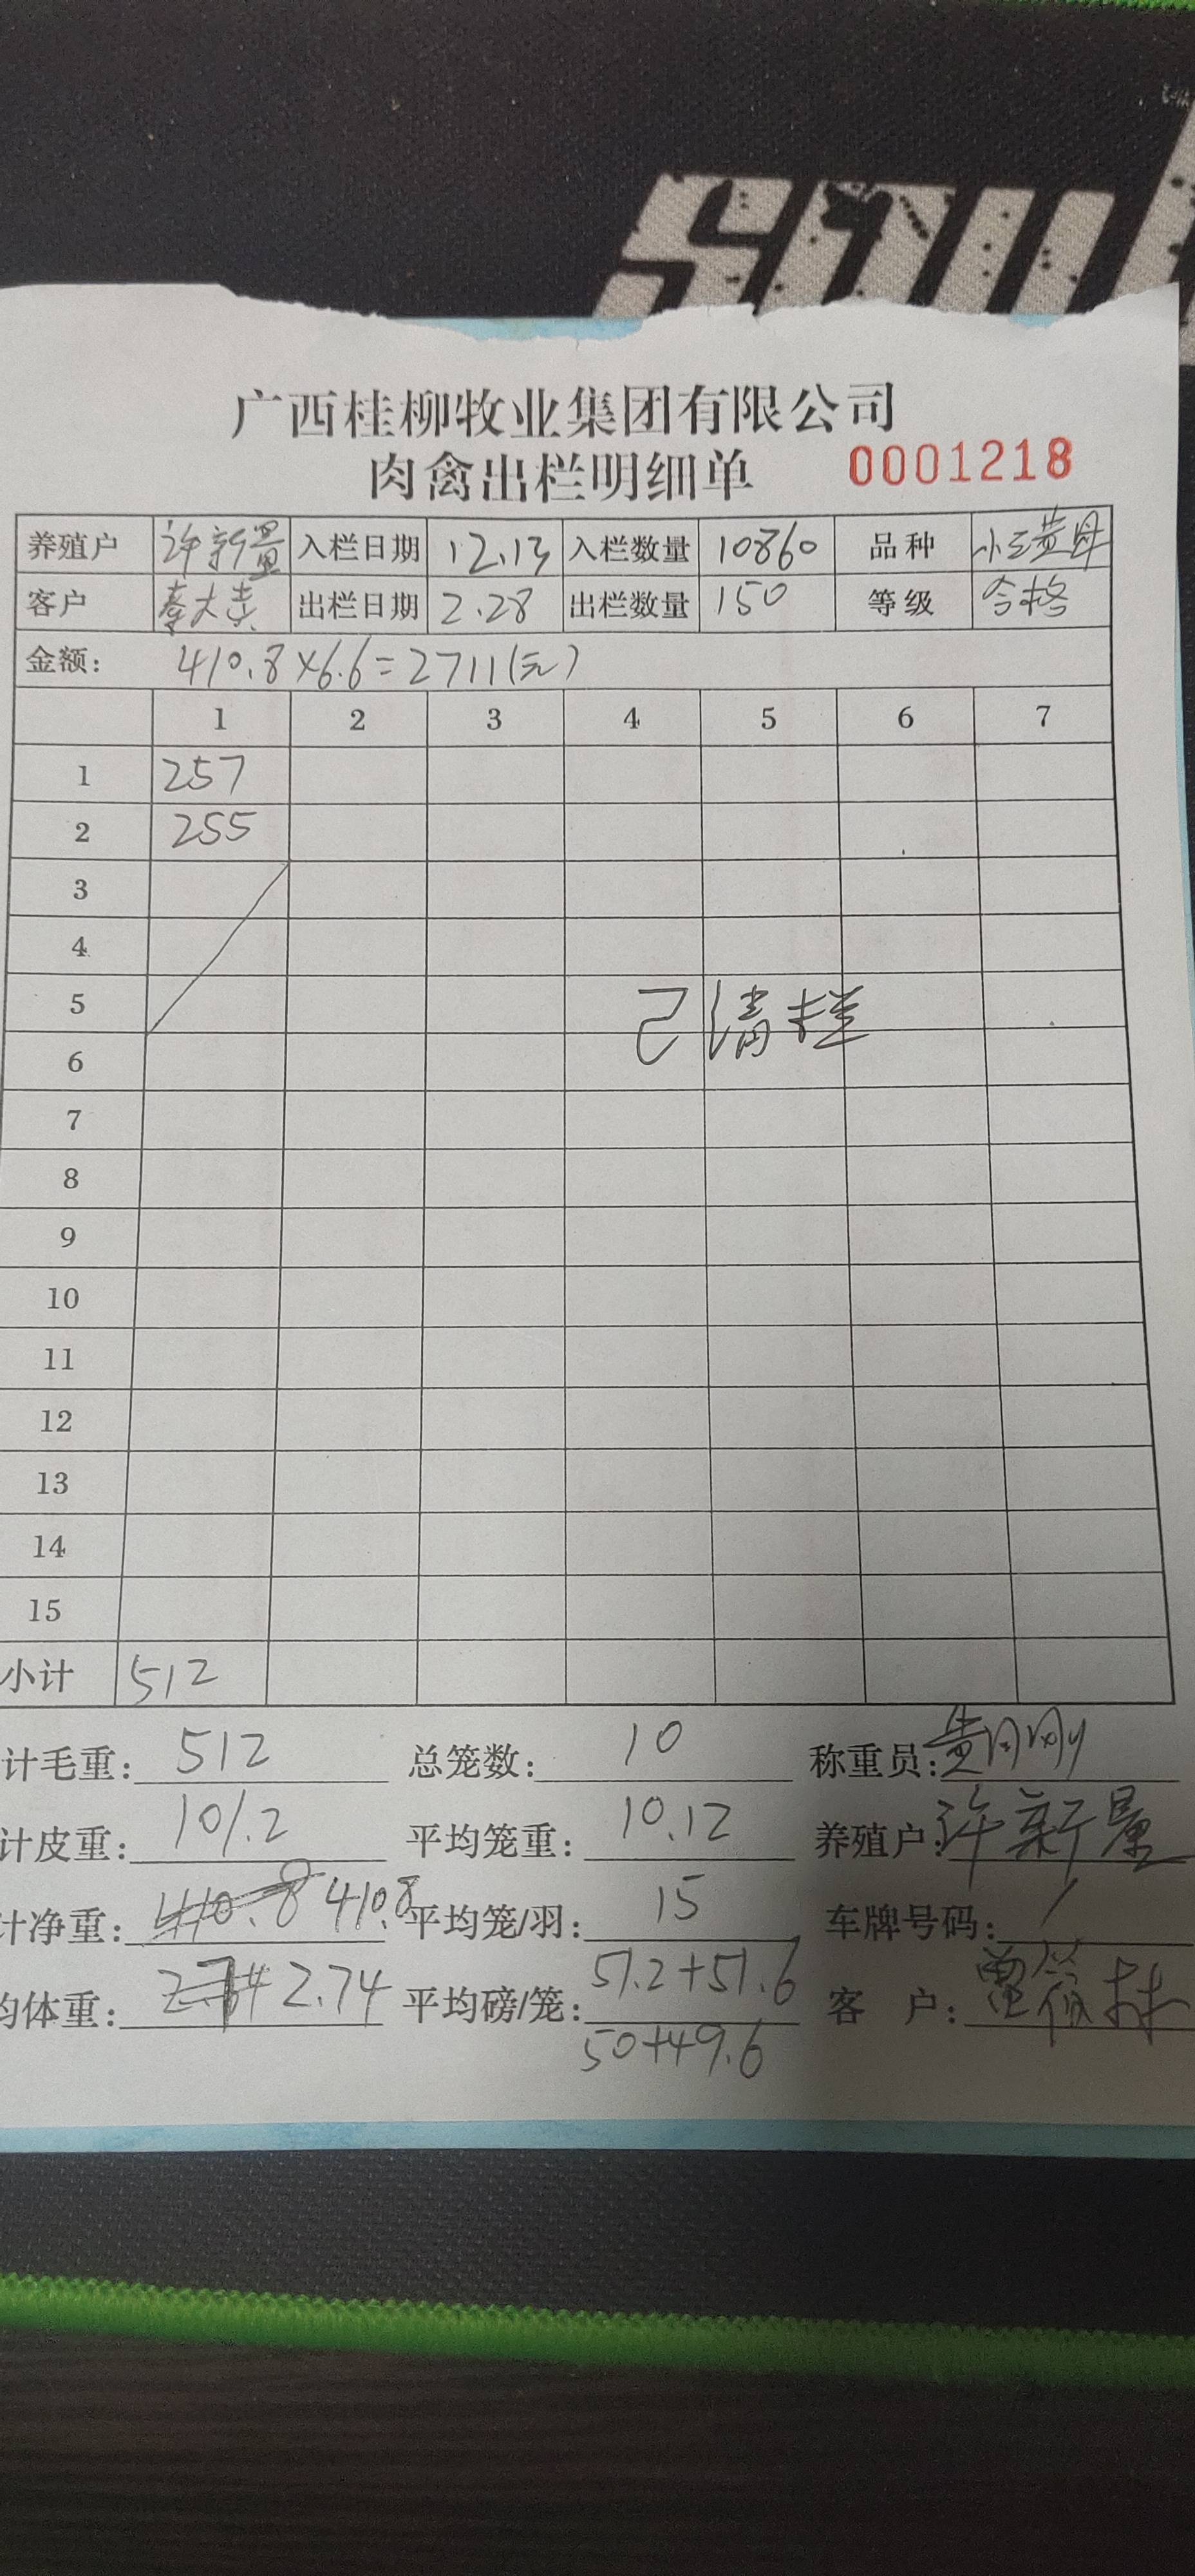 广西桂柳牧业集团有限公司
肉禽出栏明细单 0001218
养殖户 许新量 入栏日期 12.13 入栏数量 10860 品种 小三黄母
客户 出栏日期 2.28 出栏数量 150 等级 合格
金额： 410.8×6.6=2711(元)
1 2 3 4 5 6 7
1 257
2 255
3
4
5
已清栏
6
7
8
9
10
11
12
13
14
15
小计 512
计毛重： 512 总笼数： 10 称重员：
计皮重： 101.2 平均笼重： 10.12 养殖户： 许新量
计净重： 410.8 410.8 平均笼/羽： 15 车牌号码： /
均体重： 2.74 平均磅/笼： 51.2+51.6 客 户：
50+49.6